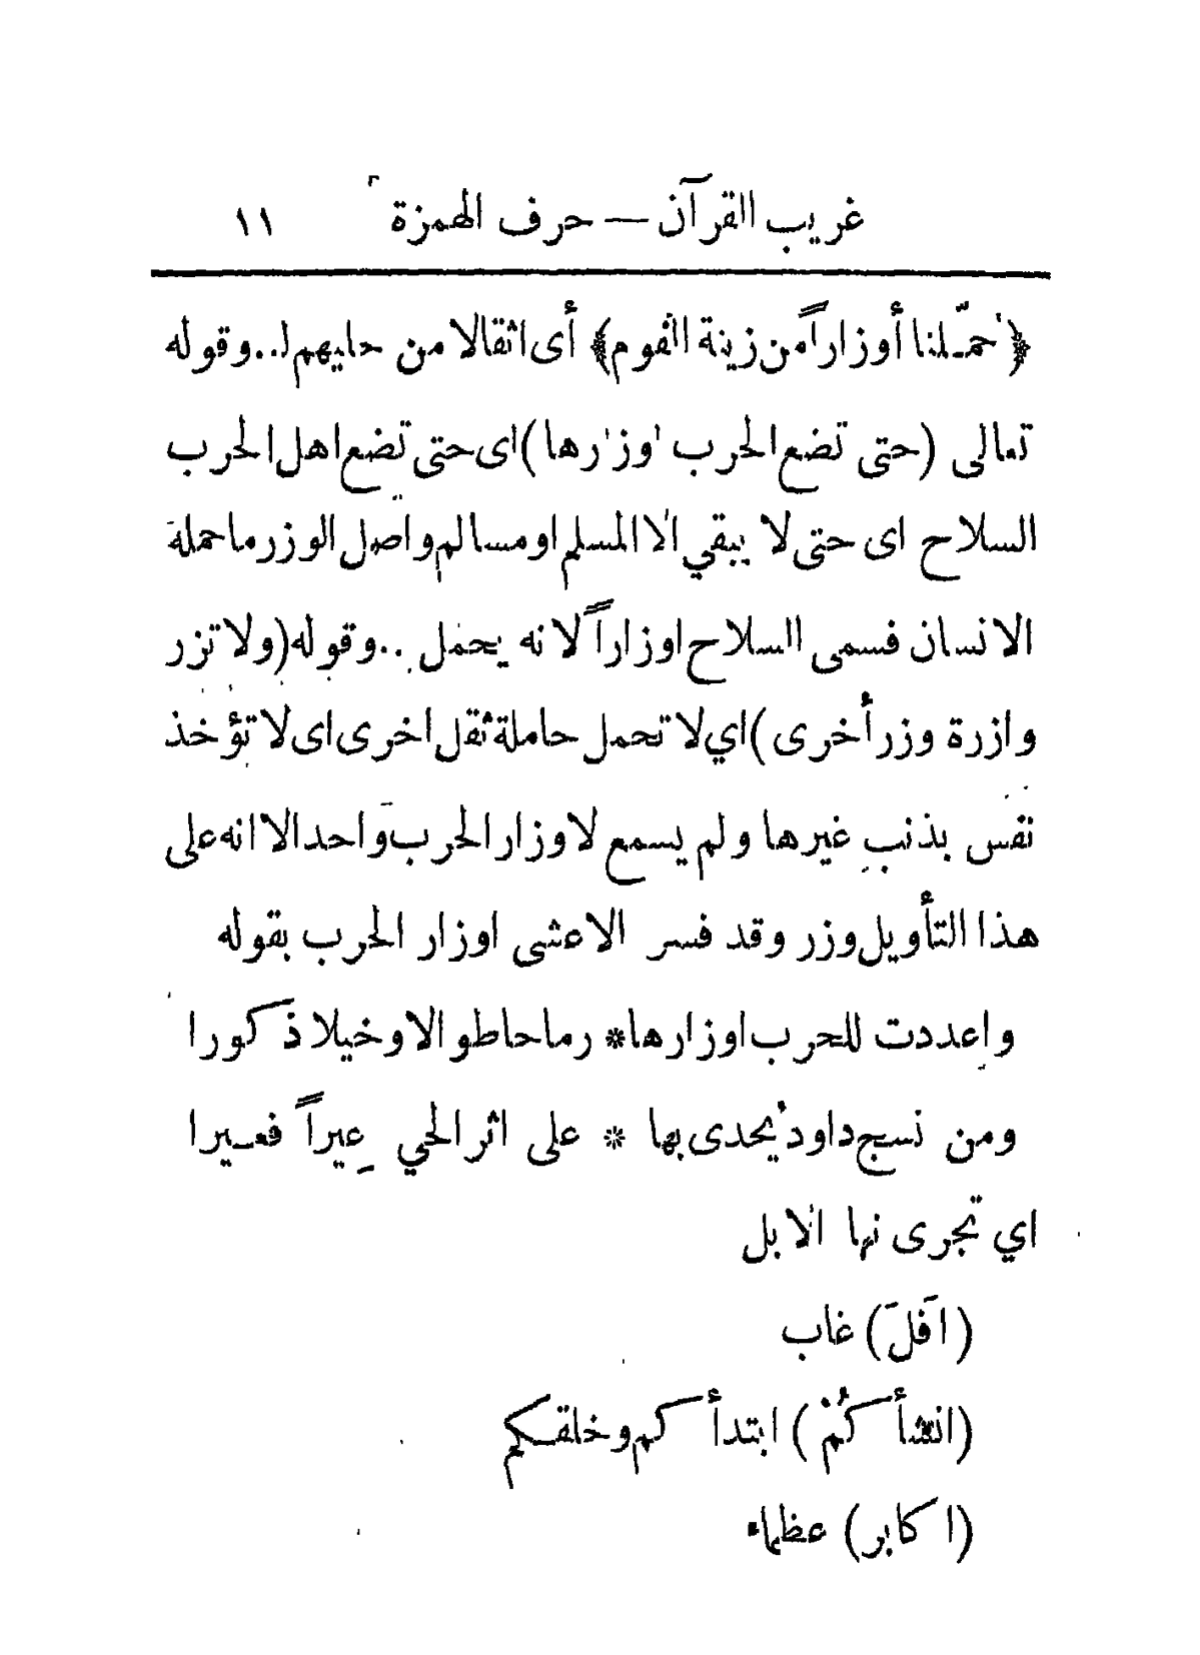 غريب القرآن — حرف الهمزة ١١
﴿حمّلنا أوزاراً من زينة القوم﴾ أى اثقالا من حليهم ..وقوله
تعالى (حتى تضع الحرب اوزارها) اى حتى تضع اهل الحرب
السلاح اى حتى لا يبقي الا المسلم او مسالم واصل الوزر ما حمله
الانسان فسمى السلاح اوزاراً لانه يحمل ..وقوله (ولا تزر
وازرة وزر أخرى) اي لا تحمل حاملة ثقل اخرى اى لا تؤخذ
نفس بذنب غيرها ولم يسمع لاوزار الحرب واحد الا انه على
هذا التأويل وزر وقد فسر الاعشى اوزار الحرب بقوله
واعددت للحرب اوزارها * رماحا طوالا وخيلا ذكورا
ومن نسج داود يُحدى بها * على اثر الحي عيراً فعيرا
اي تجرى بها الابل
(افلَ) غاب
(انشأكُمْ) ابتدأكم وخلقكم
(اكابر) عظماء